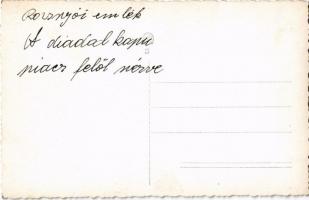 Rozsnyói emlék
A diadal kapu
piacz felől nézve